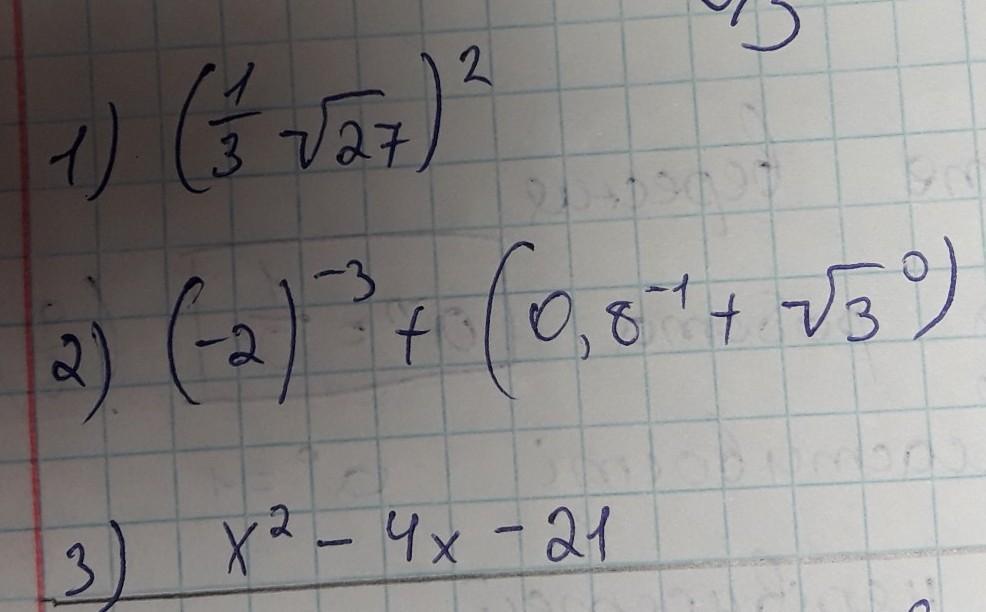 1) (1/3 √27)²
2) (-2)⁻³ + (0,8⁻¹ + √3⁰)
3) x² - 4x - 21